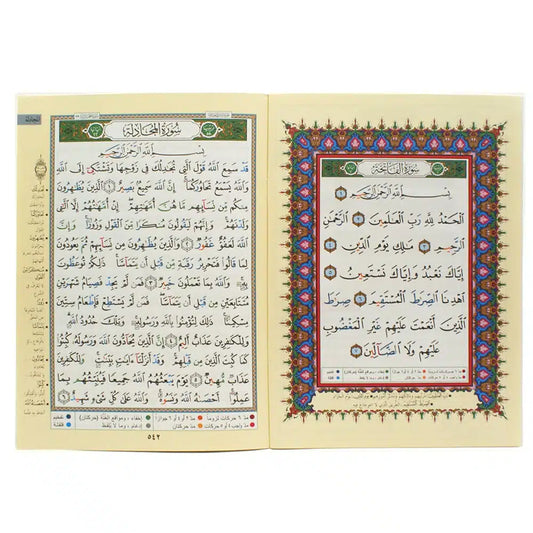 سُورَةُ الْفَاتِحَةِ
بِسْمِ ٱللَّهِ ٱلرَّحْمَٰنِ ٱلرَّحِيمِ ١
ٱلْحَمْدُ لِلَّهِ رَبِّ ٱلْعَٰلَمِينَ ٢ ٱلرَّحْمَٰنِ
ٱلرَّحِيمِ ٣ مَٰلِكِ يَوْمِ ٱلدِّينِ ٤
إِيَّاكَ نَعْبُدُ وَإِيَّاكَ نَسْتَعِينُ ٥
ٱهْدِنَا ٱلصِّرَٰطَ ٱلْمُسْتَقِيمَ ٦ صِرَٰطَ
ٱلَّذِينَ أَنْعَمْتَ عَلَيْهِمْ غَيْرِ ٱلْمَغْضُوبِ
عَلَيْهِمْ وَلَا ٱلضَّآلِّينَ ٧
المجادلة
سُورَةُ المُجَادلة
بِسْمِ ٱللَّهِ ٱلرَّحْمَٰنِ ٱلرَّحِيمِ
قَدْ سَمِعَ ٱللَّهُ قَوْلَ ٱلَّتِى تُجَٰدِلُكَ فِى زَوْجِهَا وَتَشْتَكِىٓ إِلَى ٱللَّهِ
وَٱللَّهُ يَسْمَعُ تَحَاوُرَكُمَآ إِنَّ ٱللَّهَ سَمِيعٌۢ بَصِيرٌ ١ ٱلَّذِينَ يُظَٰهِرُونَ
مِنكُم مِّن نِّسَآئِهِم مَّا هُنَّ أُمَّهَٰتِهِمْ إِنْ أُمَّهَٰتُهُمْ إِلَّا ٱلَّٰٓـِٔى
وَلَدْنَهُمْ وَإِنَّهُمْ لَيَقُولُونَ مُنكَرًا مِّنَ ٱلْقَوْلِ وَزُورًا وَإِنَّ
ٱللَّهَ لَعَفُوٌّ غَفُورٌ ٢ وَٱلَّذِينَ يُظَٰهِرُونَ مِن نِّسَآئِهِمْ ثُمَّ يَعُودُونَ
لِمَا قَالُوا۟ فَتَحْرِيرُ رَقَبَةٍ مِّن قَبْلِ أَن يَتَمَآسَّا ذَٰلِكُمْ تُوعَظُونَ
بِهِۦ وَٱللَّهُ بِمَا تَعْمَلُونَ خَبِيرٌ ٣ فَمَن لَّمْ يَجِدْ فَصِيَامُ شَهْرَيْنِ
مُتَتَابِعَيْنِ مِن قَبْلِ أَن يَتَمَآسَّا فَمَن لَّمْ يَسْتَطِعْ فَإِطْعَامُ سِتِّينَ
مِسْكِينًا ذَٰلِكَ لِتُؤْمِنُوا۟ بِٱللَّهِ وَرَسُولِهِۦ وَتِلْكَ حُدُودُ ٱللَّهِ
وَلِلْكَٰفِرِينَ عَذَابٌ أَلِيمٌ ٤ إِنَّ ٱلَّذِينَ يُحَآدُّونَ ٱللَّهَ وَرَسُولَهُۥ كُبِتُوا۟
كَمَا كُبِتَ ٱلَّذِينَ مِن قَبْلِهِمْ وَقَدْ أَنزَلْنَآ ءَايَٰتٍۭ بَيِّنَٰتٍ وَلِلْكَٰفِرِينَ
عَذَابٌ مُّهِينٌ ٥ يَوْمَ يَبْعَثُهُمُ ٱللَّهُ جَمِيعًا فَيُنَبِّئُهُم بِمَا
عَمِلُوٓا۟ أَحْصَىٰهُ ٱللَّهُ وَنَسُوهُ وَٱللَّهُ عَلَىٰ كُلِّ شَىْءٍ شَهِيدٌ ٦
٥٤٢